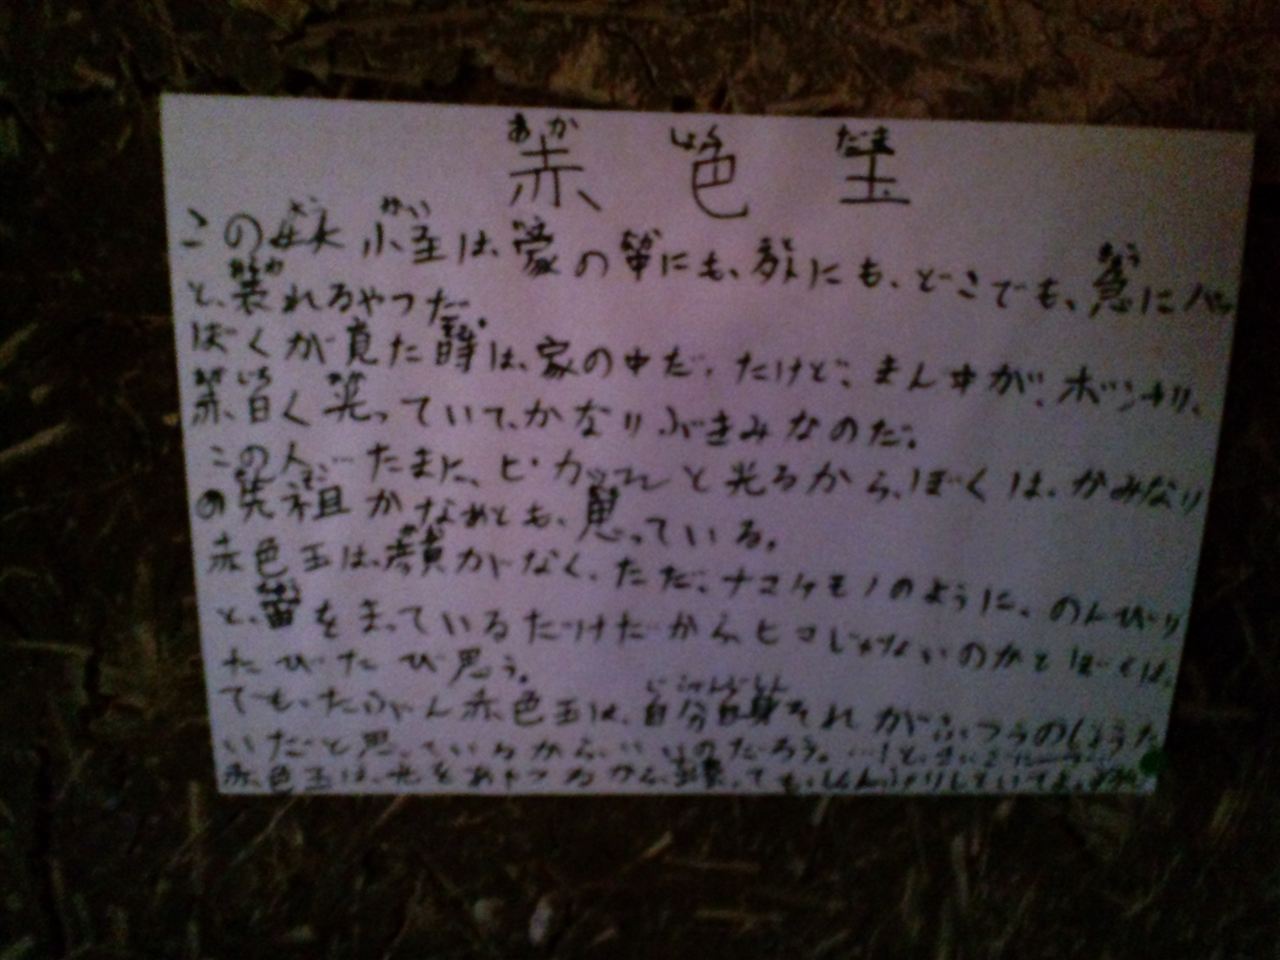 赤色玉
この妖怪は、家の中にも、旅にも、どこでも、急にパッ
と、表れるやつだ。
ぼくが見た時は、家の中だ。たけど、まん中が、ボンヤリ、
赤白く光っていて、かなりぶきみなのだ。
この人…たまに、ピカッーと光るから、ぼくは、かみなり
の先祖かなあとも、思っている。
赤色玉は、顔がなく、ただ、ナマケモノのように、のんびり
と、雷をまっているだけだからヒマじゃないのかとぼくは、
たびたび思う。
でも、たぶん赤色玉は、自分自身それがふつうのじょうた
いだと思っているから、いいのだろう。
赤色玉は、光をあやつるから、